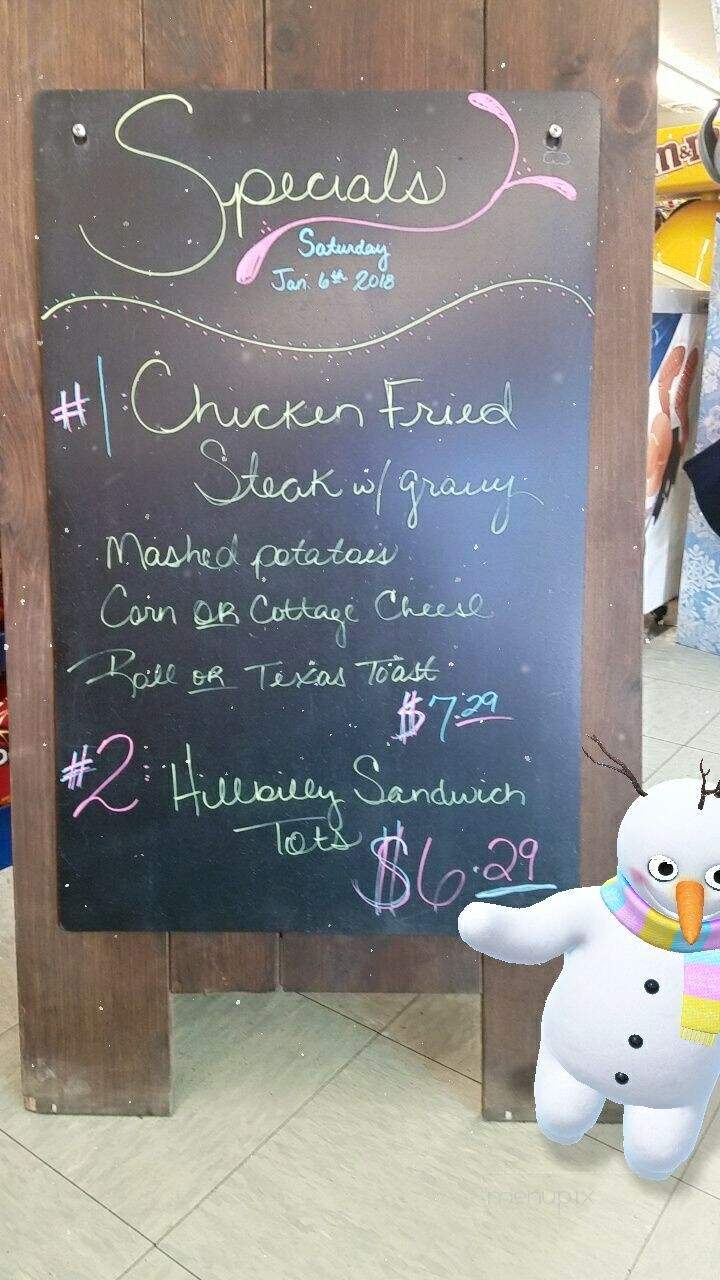 Specials
Saturday
Jan. 6th 2018
#1: Chicken Fried
Steak w/ gravy
Mashed potatoes
Corn OR Cottage Cheese
Roll or Texas Toast
$7.29
#2: Hillbilly Sandwich
Tots $6.29
m&m
menupix